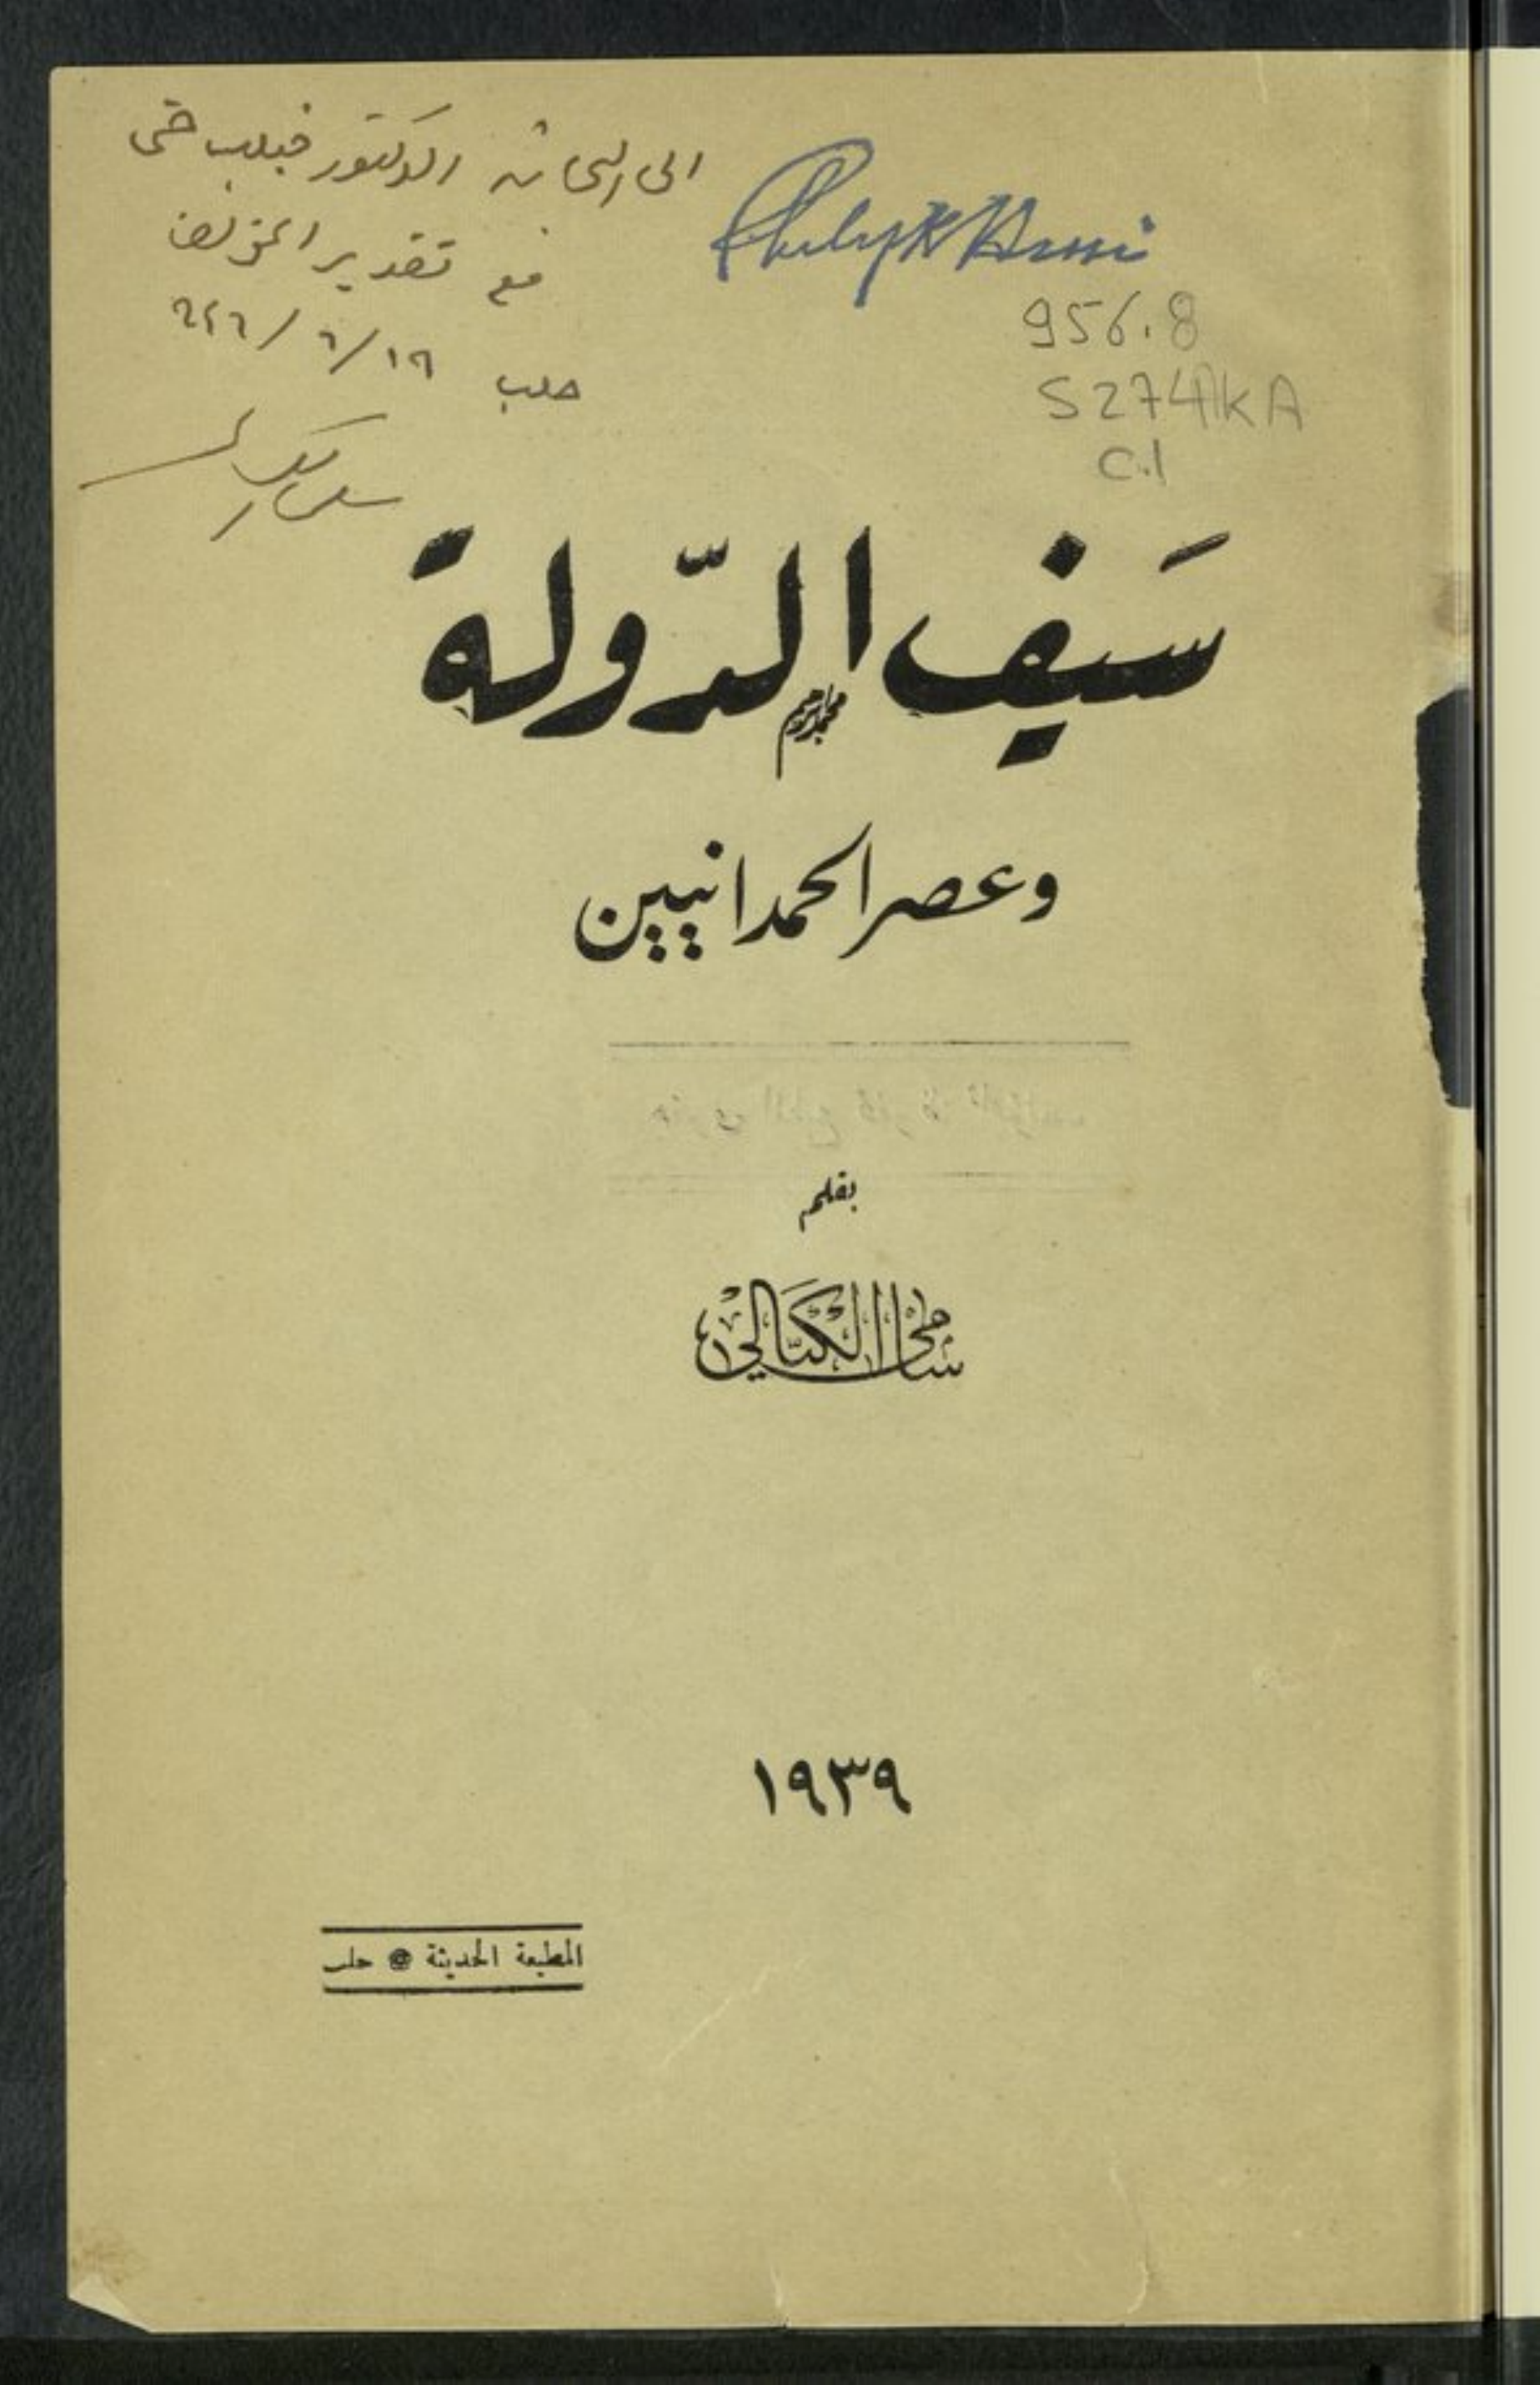 الى البحاثة الدكتور فيليب حتي
مع تقدير المؤلف
حلب ١٩/٦/
Philip K Hitti
956.8
S274kA
c.1
سَيف الدّولة
وعصر الحمدانيين
بقلم
سامي الكيالي
١٩٣٩
المطبعة الحديثة حلب